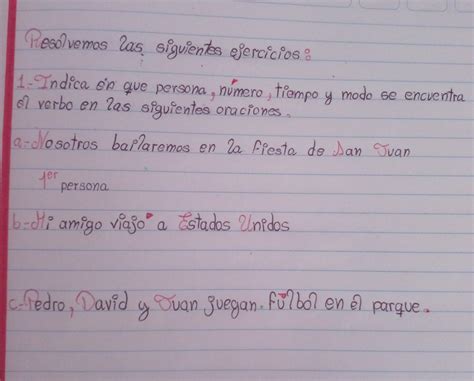 Resolvemos las siguientes ejercicios:
1.- Indica en que persona, número, tiempo y modo se encuentra
el verbo en las siguientes oraciones.
a.- Nosotros bailaremos en la fiesta de San Juan
1er persona
b.- Mi amigo viajó a Estados Unidos
c.- Pedro, David y Juan juegan. fútbol en él parque.